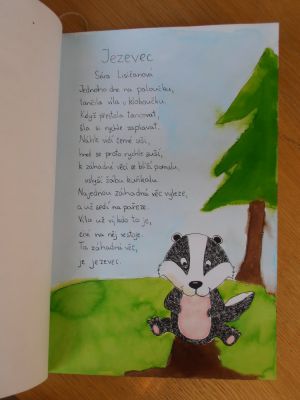 Jezevec
Sára Lisičanova
Jednoho dne na paloučku,
tančila víla v kloboučku.
Když přestala tancovat,
šla si rychle zaplavat.
Náhle vidí černé uši,
hned se proto rychle suší,
k záhadné věci se blíží pomalu,
uslyší žabu kuňkalu
Najednou záhadná věc vyleze,
a už sedí na pařeze.
Víla už ví, kdo to je,
ani na něj
Ta záhadná věc,
je jezevec.